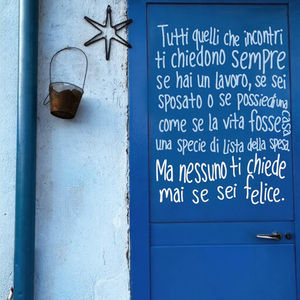 Tutti quelli che incontri
ti chiedono sempre
se hai un lavoro, se sei
sposato o se possiedi una
casa
come se la vita fosse
una specie di lista della spesa.
Ma nessuno ti chiede
mai se sei felice.